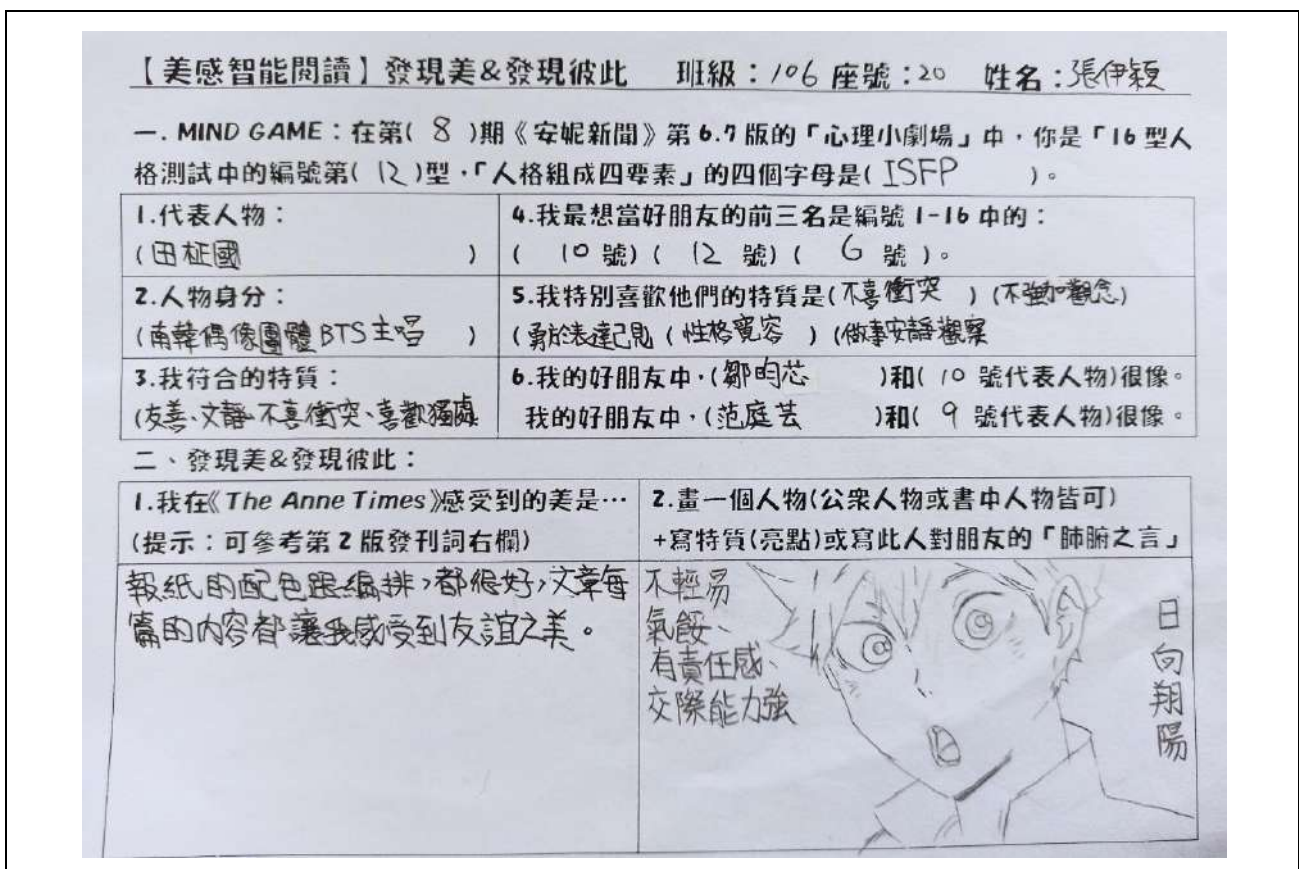 【美感智能閱讀】發現美&發現彼此 班級：106 座號：20 姓名：張伊穎
一. MIND GAME：在第( 8 )期《安妮新聞》第 6.7 版的「心理小劇場」中，你是「16 型人
格測試中的編號第( 12 )型，「人格組成四要素」的四個字母是( ISFP )。
1.代表人物：
(田柾國 )
4.我最想當好朋友的前三名是編號 1-16 中的：
( 10 號) ( 12 號) ( 6 號 )。
2.人物身分：
(南韓偶像團體BTS主唱 )
5.我特別喜歡他們的特質是(不喜衝突 ) (不強加觀念)
(勇於表達己見 (性格寬容 ) (做事安靜觀察
3.我符合的特質：
(友善、文靜、不喜衝突、喜歡獨處
6.我的好朋友中，(鄒昀芯 )和( 10 號代表人物)很像。
我的好朋友中，(范庭芸 )和( 9 號代表人物)很像。
二、發現美&發現彼此：
1.我在《The Anne Times》感受到的美是…
(提示：可參考第 2 版發刊詞右欄)
2.畫一個人物(公眾人物或書中人物皆可)
+寫特質(亮點)或寫此人對朋友的「肺腑之言」
報紙的配色跟編排，都很好，文章每
篇的內容都讓我感受到友誼之美。
不輕易
氣餒、
有責任感、
交際能力強
日向翔陽